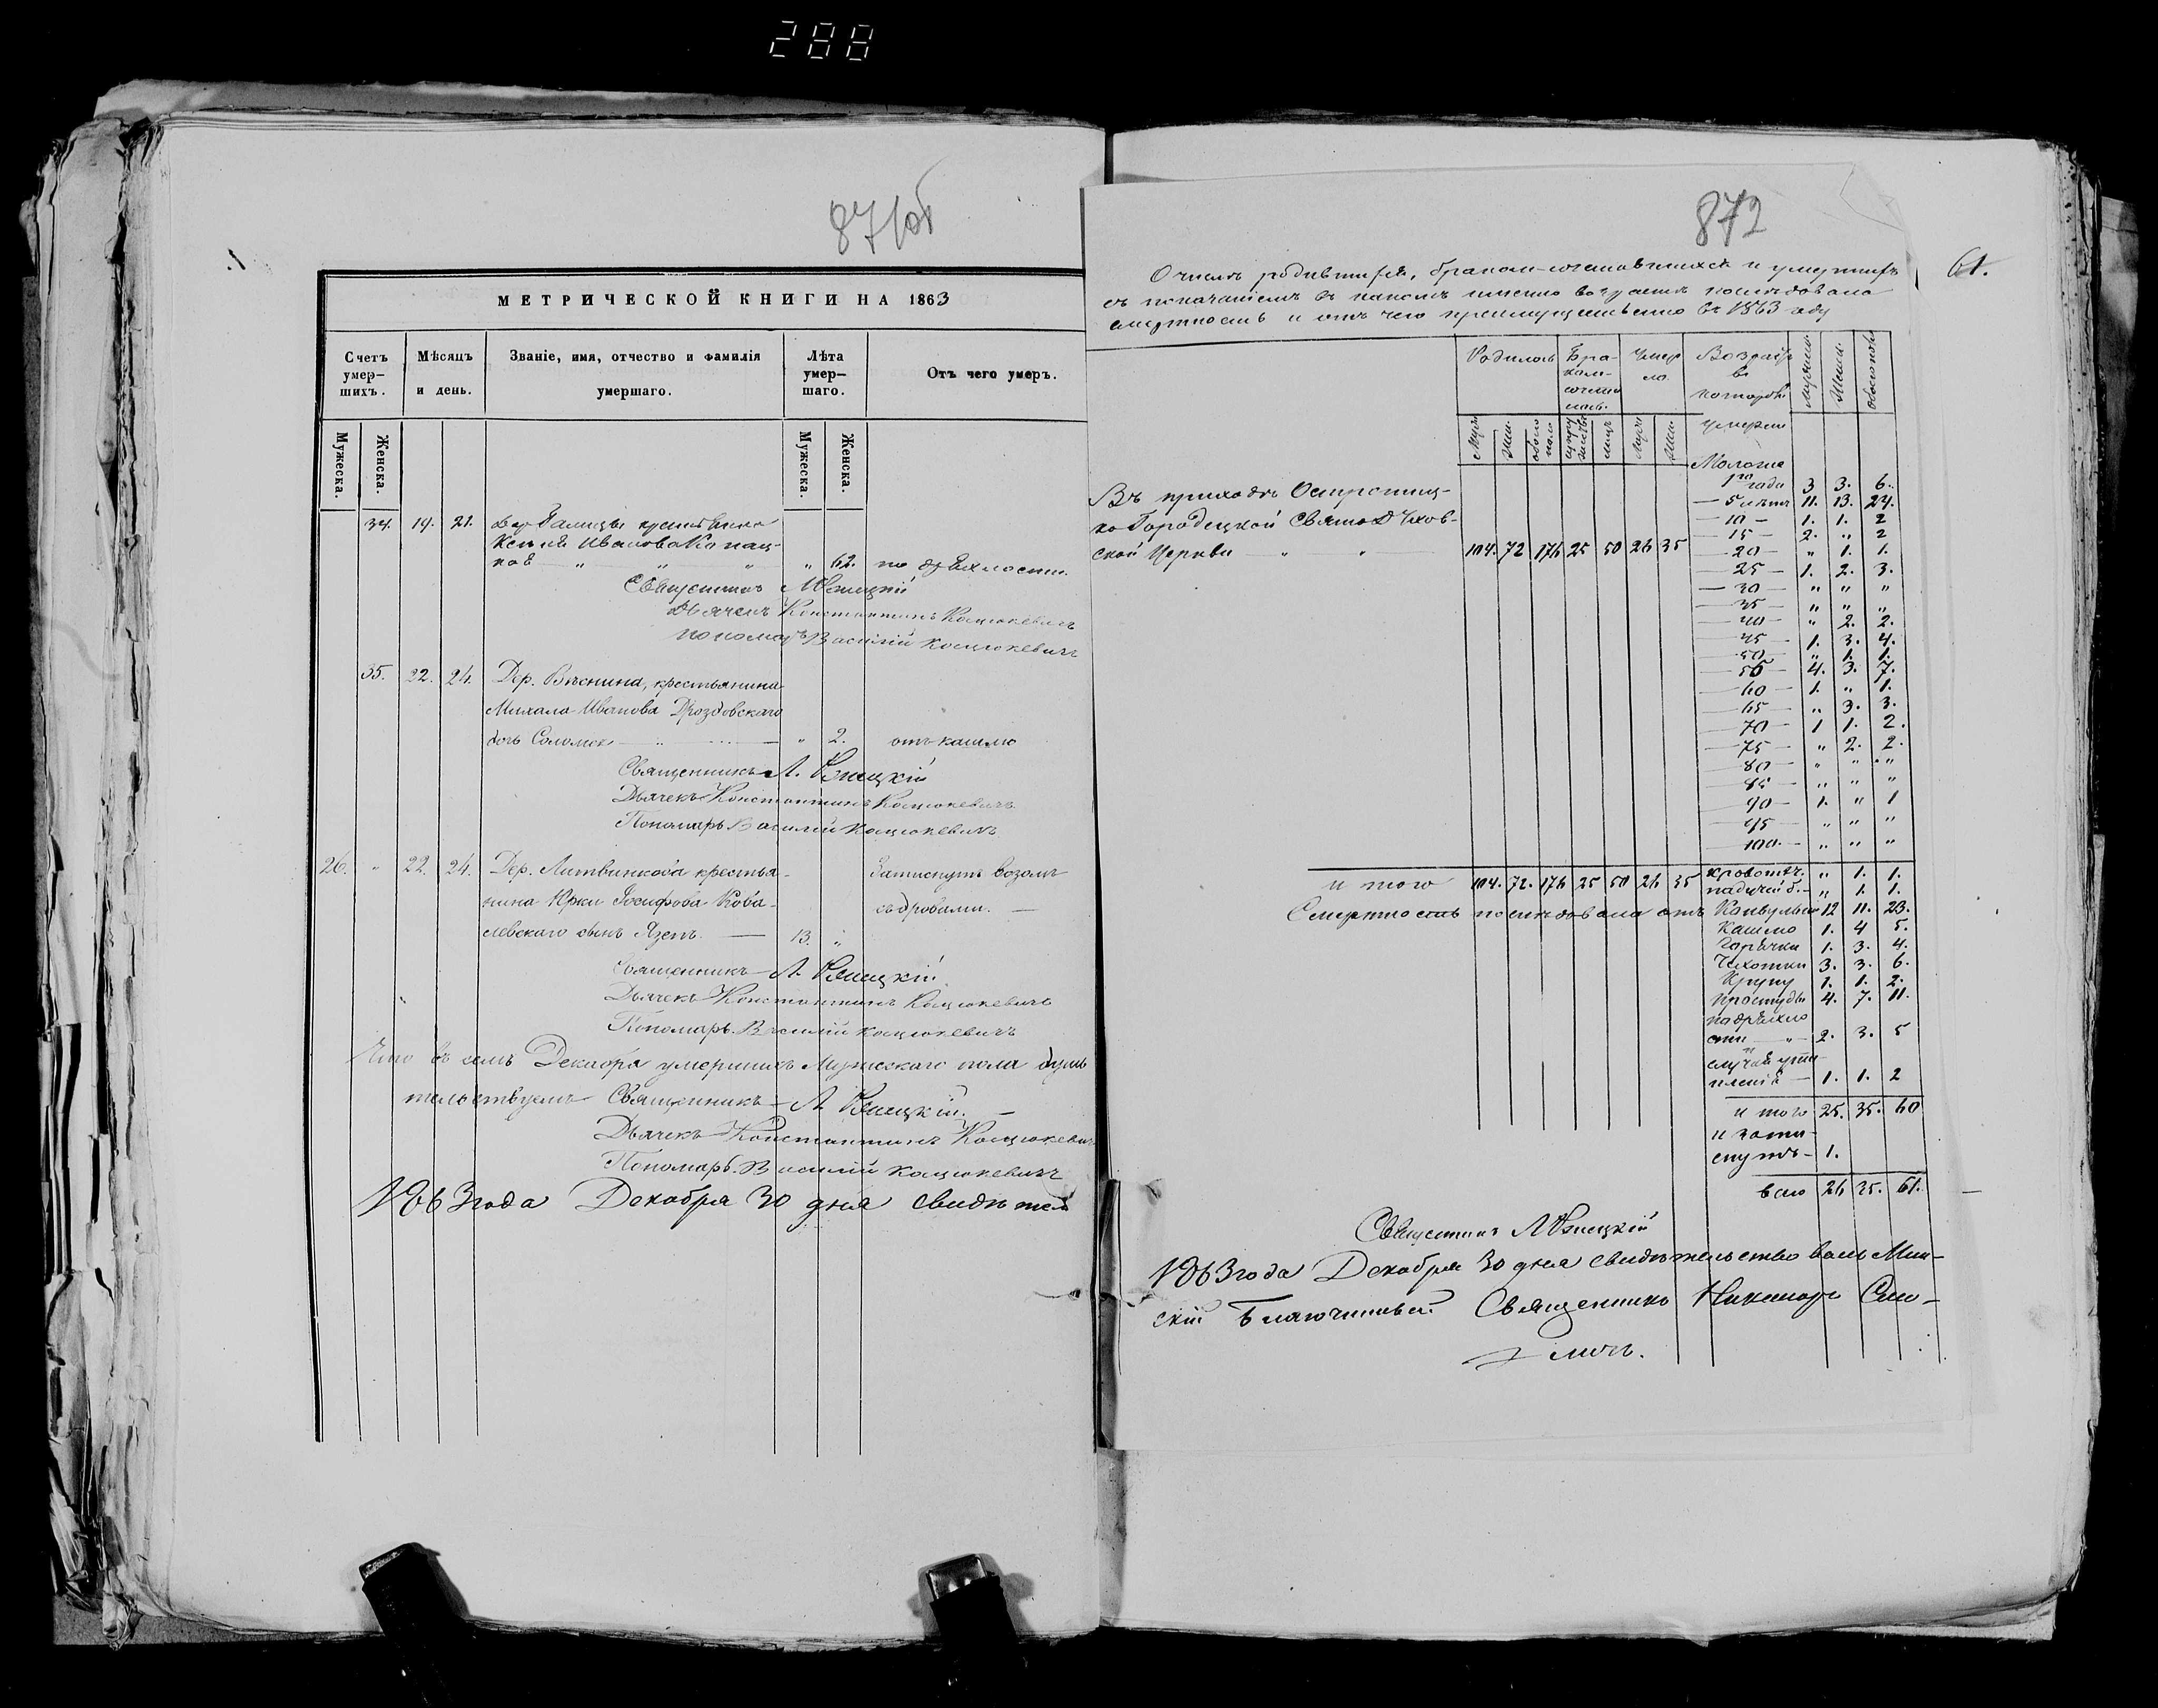 288
871об
МЕТРИЧЕСКОЙ КНИГИ НА 1863
Счетъ умер-шихъ. Мѣсяцъ и день. Званіе, имя, отчество и фамилія умершаго. Лѣта умер-шаго. Отъ чего умеръ.
Мужеска. Женска. Мужеска. Женска.
34. 19. 21.
Ксенія Иванова Копац-
" 62. по дряхлости.
Священникъ
Дьячекъ Константинъ Коцюкевичъ
Пономарь Василій Коцюкевичъ
35. 22. 24. Дер. Вѣснина, крестьянина
Михала Иванова Дроздовскаго
дочь Соломея " 2. отъ кашлю
Священникъ Л.
Дьячекъ Константинъ Коцюкевичъ
Пономарь Василій Коцюкевичъ
26. " 22. 24. Дер. Литвинкова крестья- Затиснутъ возомъ
нина Юрки Іосифова Кова- съ дровами. —
левскаго сынъ Язепъ. — 13. "
Священникъ Л.
Дьячекъ Константинъ Коцюкевичъ
Пономарь Василій Коцюкевичъ
Что въ семъ Декабрѣ умершихъ Мужескаго пола
Священникъ Л.
Дьячекъ Константинъ Коцюкевичъ
Пономарь Василій Коцюкевичъ
1863 года Декабря 30 дня свидѣтел
872
61.
О числѣ родившихся, бракомъ-сочетавшихся и умершихъ
съ показаніемъ въ какомъ именно возрастѣ послѣдовала
смертность и отъ чего преимущественно въ 1863 году
Родилось Бра-ком-сочета-лось. Умер-ло. Возрастъ въ которомъ умерли
Муж. Жен. обоего пола лицъ Муж. Жен.
Моложе
1го года 3 3. 6.
— 5 лѣтъ 11. 13. 24.
— 10 — 1. 1. 2
— 15 — 2. " 2
Въ приходѣ Острошиц-
ко Городецкой Свято Духов-
ской Церкви — " " 104. 72 176 25 50 26 35
— 20 — " 1. 1.
— 25 — 1. 2. 3.
— 30 — " " "
— 35 — " " "
— 40 — " 2. 2.
— 45 — 1. 3. 4.
— 50 — " 1. 1.
— 55 — 4. 3. 7.
— 60 — 1. " 1.
— 65 — " 3. 3.
— 70 — 1 1. 2.
— 75 — " 2. 2.
— 80 — " " "
— 85 — " " "
— 90 — 1. " 1
— 95 — " " "
— 100. — " " "
и того 104. 72. 176 25 50 26 35
" 1. 1.
падучей б. — " 1. 1.
Смертность послѣдовала отъ Конвульсіи 12 11. 23.
Кашлю 1. 4 5.
Горячки 1. 3. 4.
Чахотки 3. 3. 6.
Крупу 1. 1. 2.
Простуды 4. 7. 11.
по дряхло
сти — " — 2. 3. 5
1. 1. 2
и того 25. 35. 60
и зати-
снутъ — 1.
всего 26 35. 61.
Священникъ
1863 года Декабря 30 дня свидѣтельствовалъ Мин-
скій Благочинный Священникъ Никаноръ Смо-
личъ.